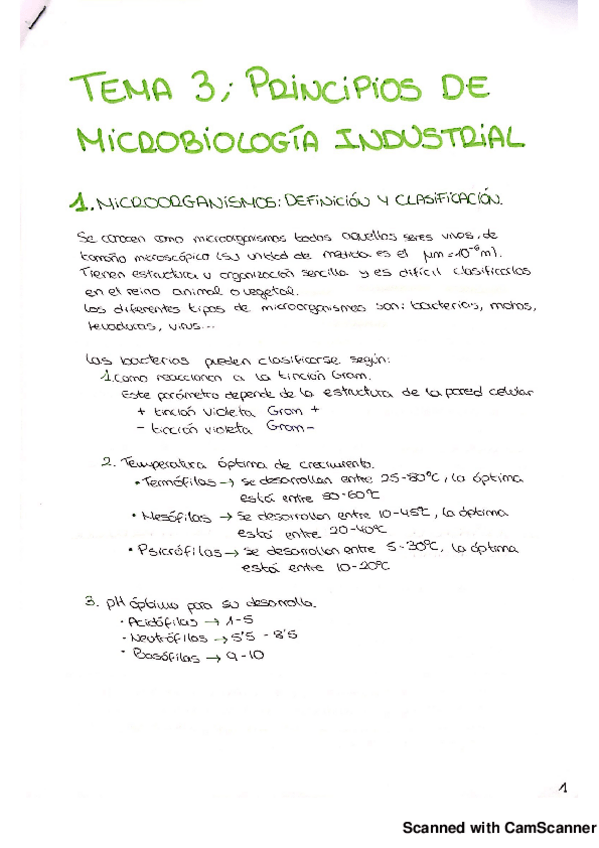 TEMA 3; PRINCIPIOS DE
MICROBIOLOGÍA INDUSTRIAL
1. MICROORGANISMOS: DEFINICIÓN Y CLASIFICACIÓN.
Se conocen como microorganismos todos aquellos seres vivos, de
tamaño microscópico (su unidad de medida es el μm = 10⁻⁶m).
Tienen estructura u organización sencilla y es difícil clasificarlos
en el reino animal o vegetal.
Los diferentes tipos de microorganismos son: bacterias, mohos,
levaduras, virus...
Las bacterias pueden clasificarse según:
1. Como reaccionen a la tinción Gram.
Este parámetro depende de la estructura de la pared celular
+ tinción violeta Gram +
- tinción violeta Gram -
2. Temperatura óptima de crecimiento.
• Termófilas → se desarrollan entre 25-80ºC, la óptima
está entre 50-60ºC
• Mesófilas → se desarrollan entre 10-45ºC, la óptima
está entre 20-40ºC
• Psicrófilas → se desarrollan entre 5-30ºC, la óptima
está entre 10-20ºC
3. pH óptimo para su desarrollo.
• Acidófilas → 1-5
• Neutrófilas → 5'5 - 8'5
• Basófilas → 9-10
1
Scanned with CamScanner